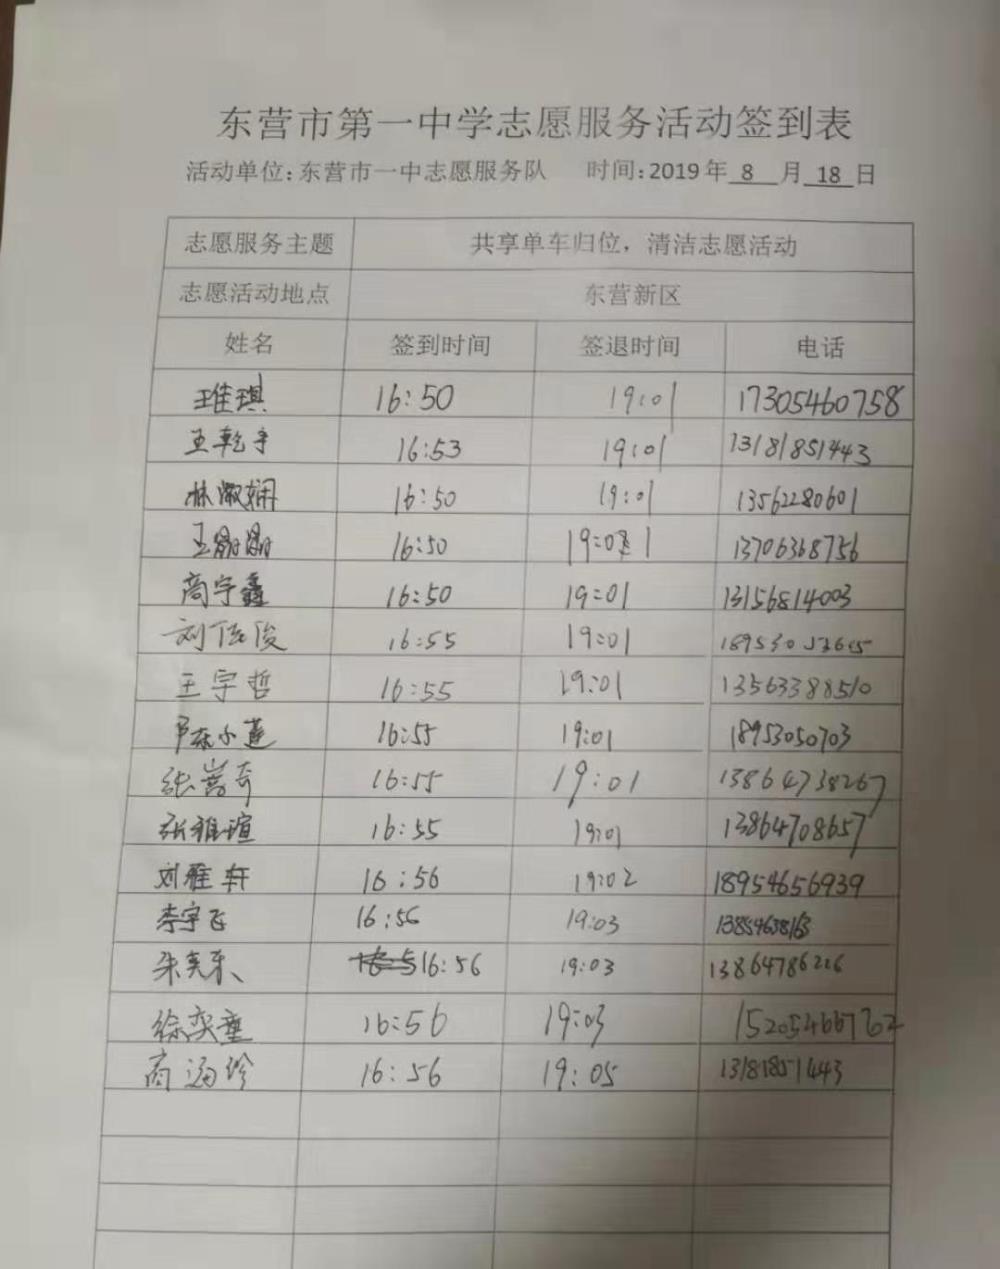 东营市第一中学志愿服务活动签到表
活动单位:东营市一中志愿服务队 时间:2019年 8 月 18 日
志愿服务主题 共享单车归位，清洁志愿活动
志愿活动地点 东营新区
姓名 签到时间 签退时间 电话
王佳琪 16:50 19:01 17305460758
王乾宇 16:53 19:01 13181851443
林淑娴 16:50 19:01 13562280601
王 16:50 19:01 13706368756
高宇鑫 16:50 19:01 13156814003
刘 俊 16:55 19:01
王宇哲 16:55 19:01 13563388510
陈小莲 16:55 19:01 18953050703
张嵩奇 16:55 19:01 13864738267
张雅瑄 16:55 19:01 13864708657
刘雅轩 16:56 19:02 18954656939
李宇飞 16:56 19:03 13854638163
朱奕东 16:56 19:03 13864786226
徐奕童 16:56 19:03 15205466762
高 珍 16:56 19:05 13181851443